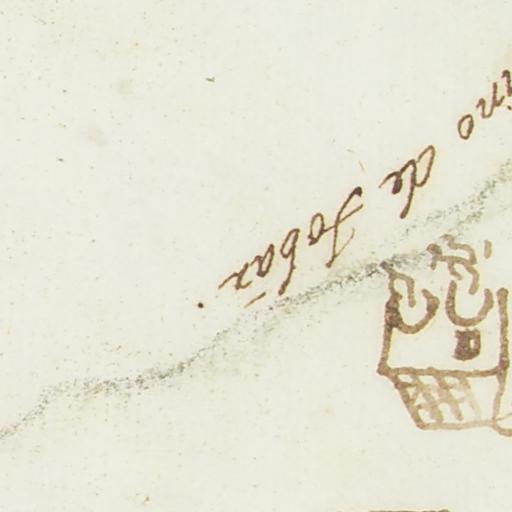 ino de Tobar.